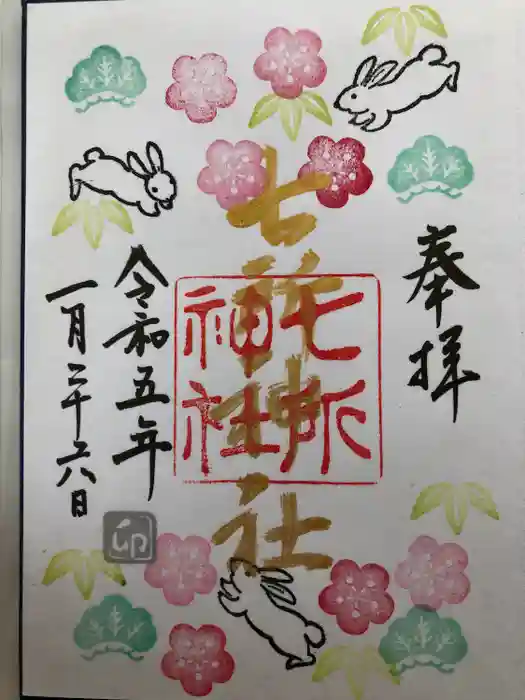 奉拝
七所神社
七所
神社
令和五年
一月二十八日
卯